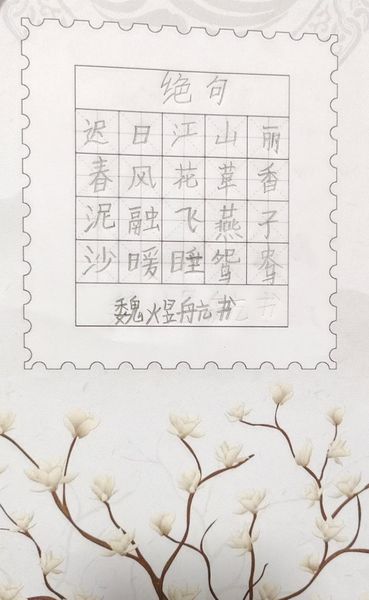 绝句
迟日江山丽
春风花草香
泥融飞燕子
沙暖睡鸳鸯
魏煜航书